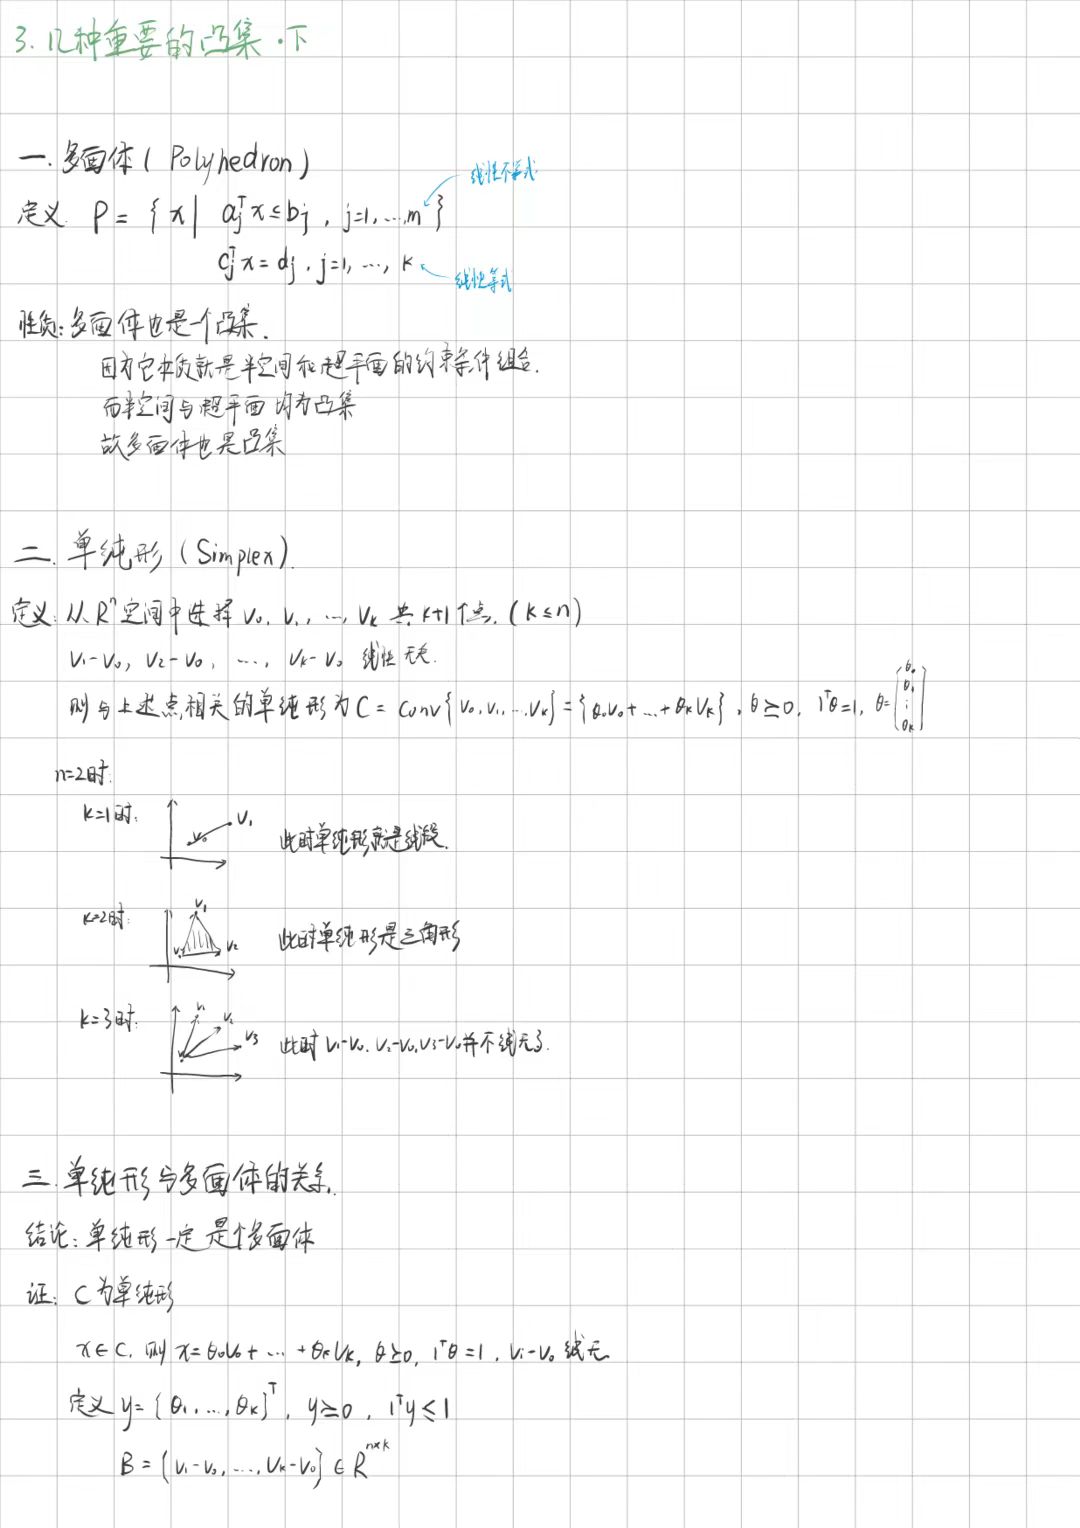 3. 几种重要的凸集·下
一. 多面体 ( Polyhedron )
线性不等式
定义. P = { x | aⱼᵀx ≤ bⱼ , j=1, ..., m }
cⱼᵀx = dⱼ , j=1, ..., k
线性等式
性质: 多面体也是一个凸集.
因为它本质就是半空间和超平面的约束条件组合.
而半空间与超平面均为凸集
故多面体也是凸集
二. 单纯形 (Simplex).
定义: 从 Rⁿ 空间中选择 v₀, v₁, ..., vₖ 共 k+1 个点. (k ≤ n)
v₁-v₀, v₂-v₀, ..., vₖ-v₀ 线性无关.
则与上述点相关的单纯形为 C = Conv{v₀, v₁, ..., vₖ} = {θ₀v₀ + ... + θₖvₖ}, θ ⪰ 0, 1ᵀθ = 1, θ = [θ₀ θ₁ ⋮ θₖ]
n=2时:
k=1时: v₀ v₁ 此时单纯形就是线段.
k=2时: v₀ v₁ v₂ 此时单纯形是三角形
k=3时: v₀ v₁ v₂ v₃ 此时 v₁-v₀, v₂-v₀, v₃-v₀ 并不线无了.
三. 单纯形与多面体的关系.
结论: 单纯形一定是个多面体
证: C为单纯形
x∈C, 则 x = θ₀v₀ + ... + θₖvₖ, θ ⪰ 0, 1ᵀθ = 1, vᵢ-v₀ 线无
定义 y = [θ₁, ..., θₖ]ᵀ, y ⪰ 0, 1ᵀy ≤ 1
B = [v₁-v₀, ..., vₖ-v₀] ∈ Rⁿˣᵏ